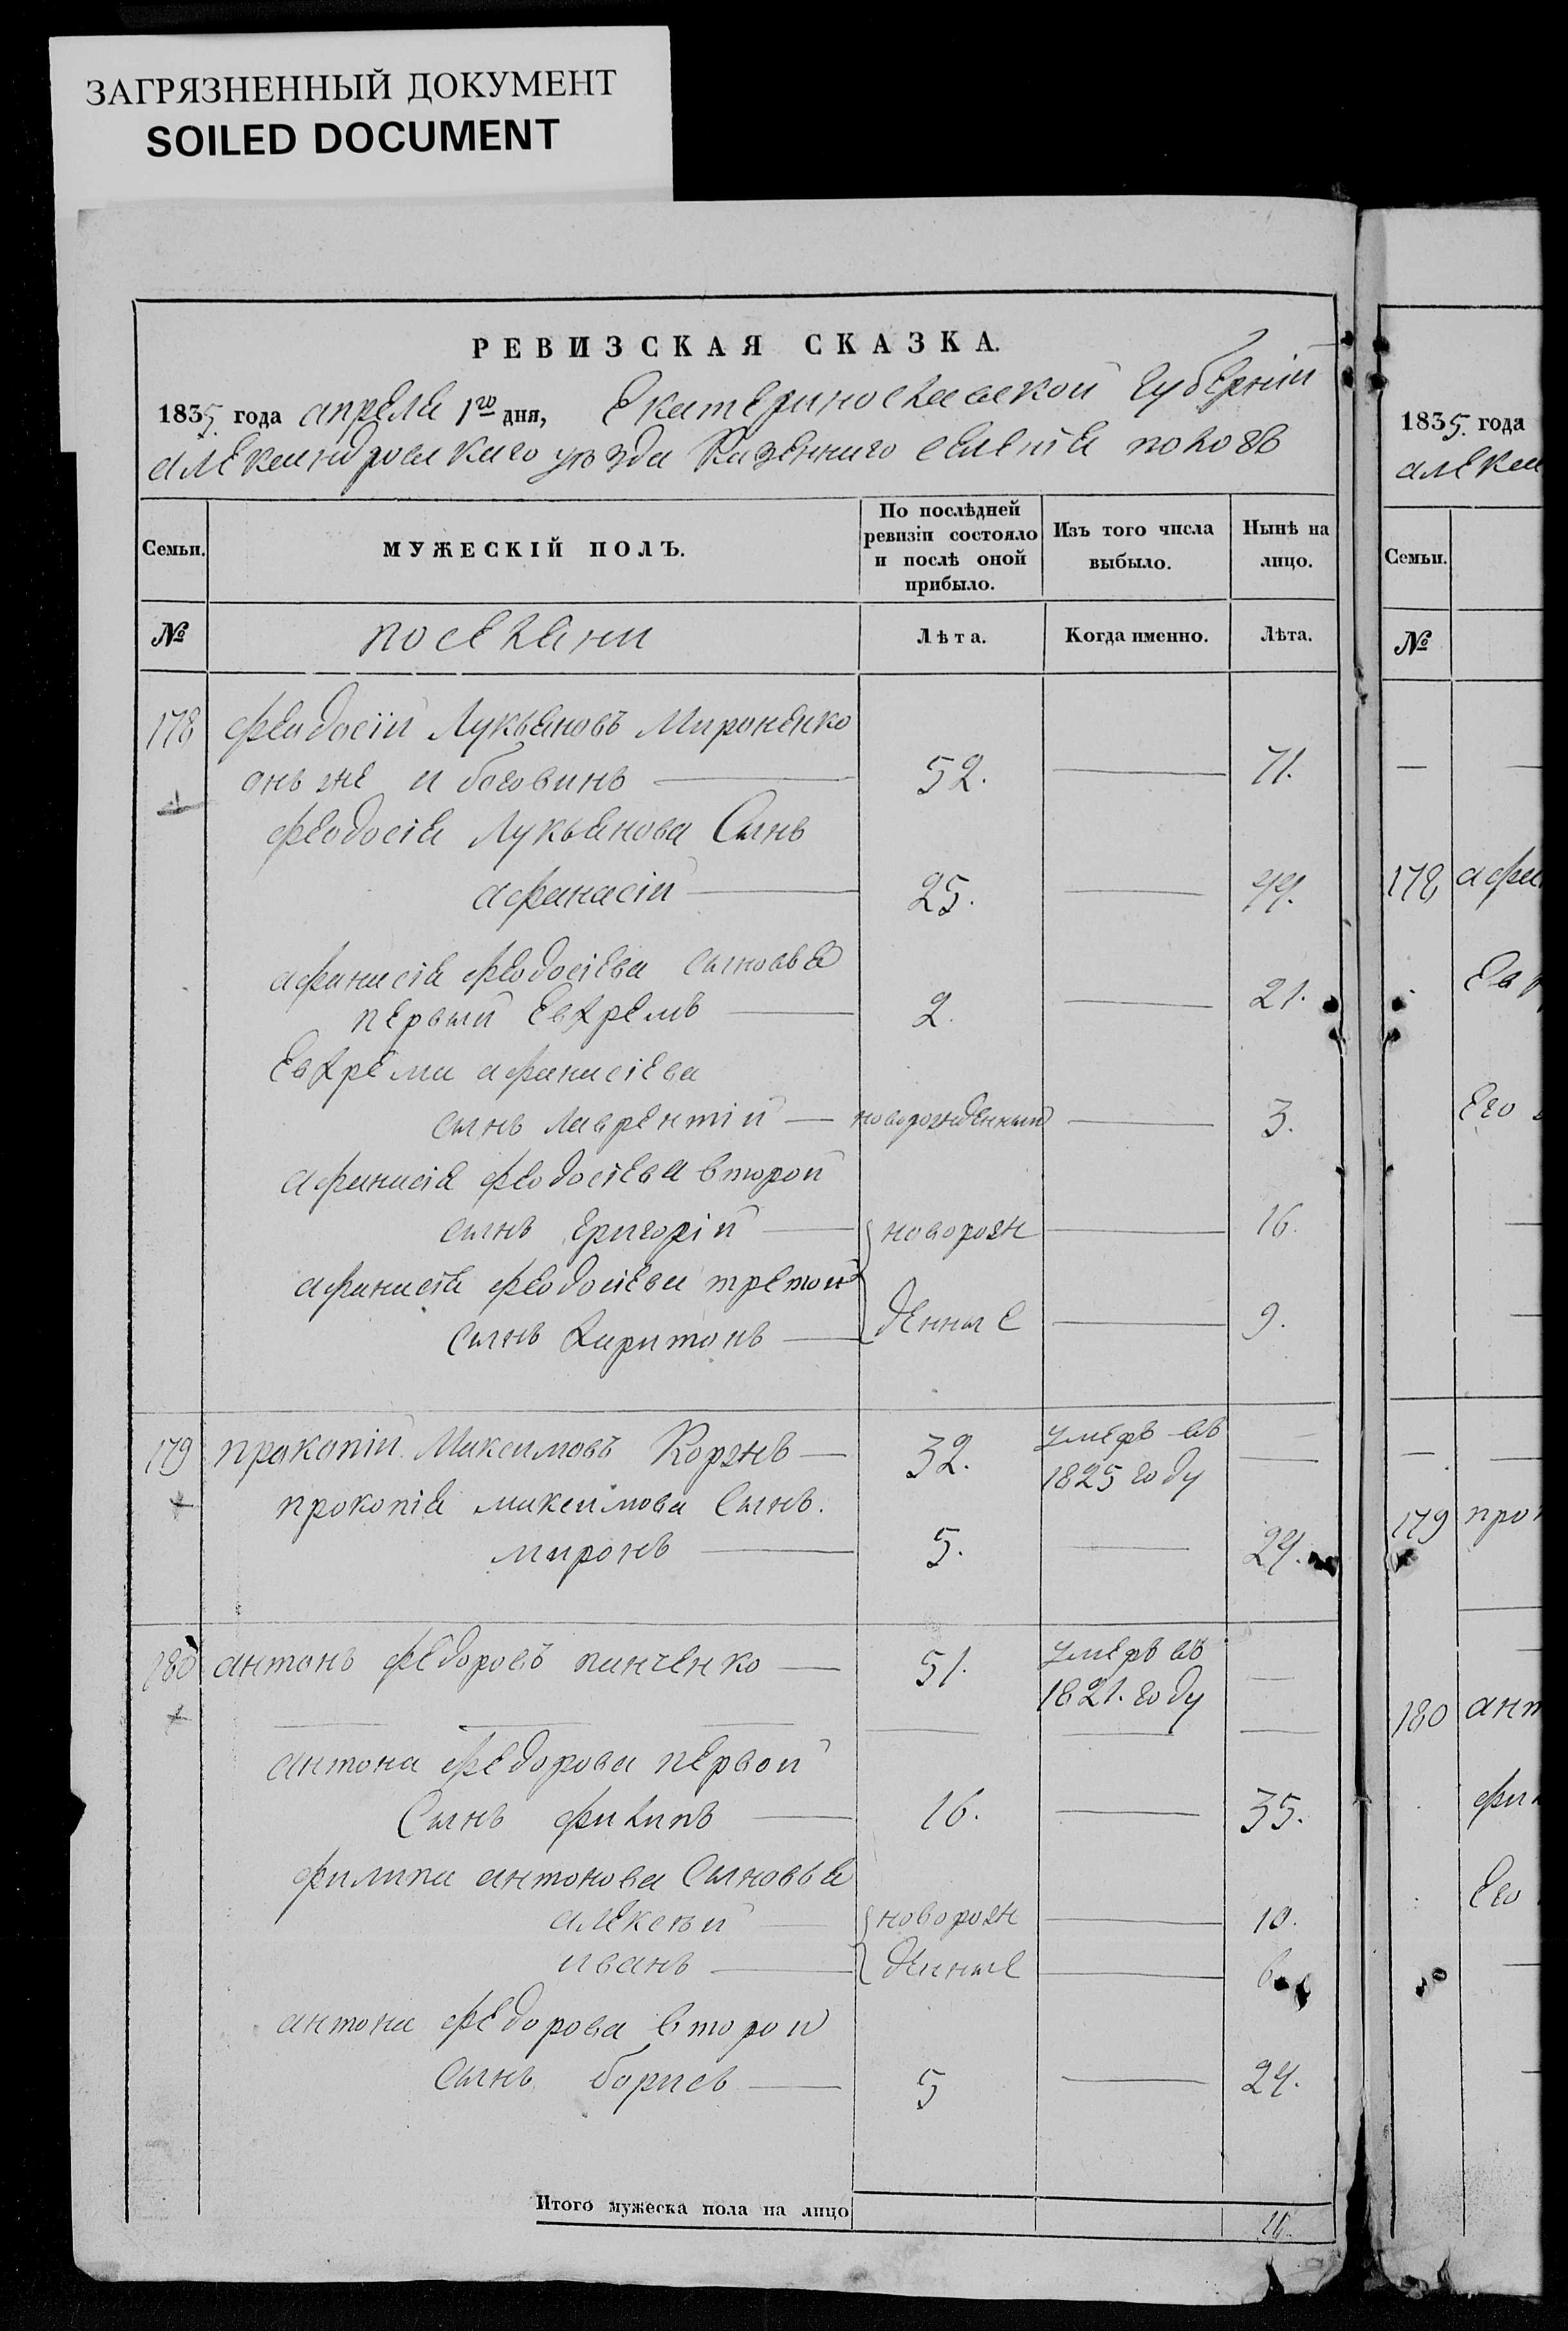 ЗАГРЯЗНЕННЫЙ ДОКУМЕНТ
SOILED DOCUMENT
РЕВИЗСКАЯ СКАЗКА.
1835. года апреля 1го дня, Екатеринославской губернии
александровскаго уѣзда Казеннаго селенїя пологъ
Семьи.
МУЖЕСКІЙ ПОЛЪ.
По послѣдней ревизіи состояло и послѣ оной прибыло.
Изъ того числа выбыло.
Нынѣ на лицо.
№
поселяни
Лѣта.
Когда именно.
Лѣта.
178 феодосїй Лукьяновъ Мироненко
онъ же и боговинъ 52. 71.
феодосія Лукьянова Сынъ
афанасій 25. 44.
афанасія феодосіева сыновья
первый Евфремъ 2. 21.
Евфрема афанасіева
сынъ лаврентій новорожденный 3.
афанасія феодосіева второй
сынъ григорій новорож 16.
афанасія феодосіева третой
сынъ Харитонъ денные 9.
179 прокопій Максимовъ Коржъ 32. умеръ въ
1825 году
прокопія максимова Сынъ.
миронъ 5. 24.
180 антонъ федоровъ панченко 51. умеръ въ
1821. году
антона федорова первой
Сынъ филипъ 16. 35.
филипа антонова Сыновья
алексѣй новорож 10.
иванъ денные 6
антона федорова второй
Сынъ борисъ 5 24.
Итого мужеска пола на лицо
1835. года
алекса
Семьи.
№
178 афа
Его
179 про
180 ант
фи
Его